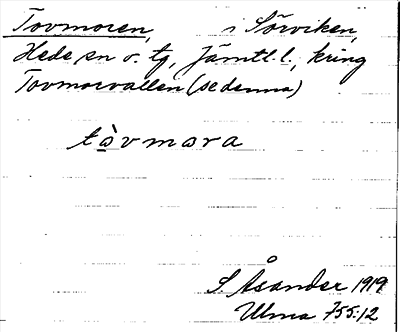 Tovmoren, i Sörviken,
Hede sn o. tg, Jämtl. l., kring
Tovmorvallen (se denna)
tòvmơra
S Åsander 1919
Ulma 755:12